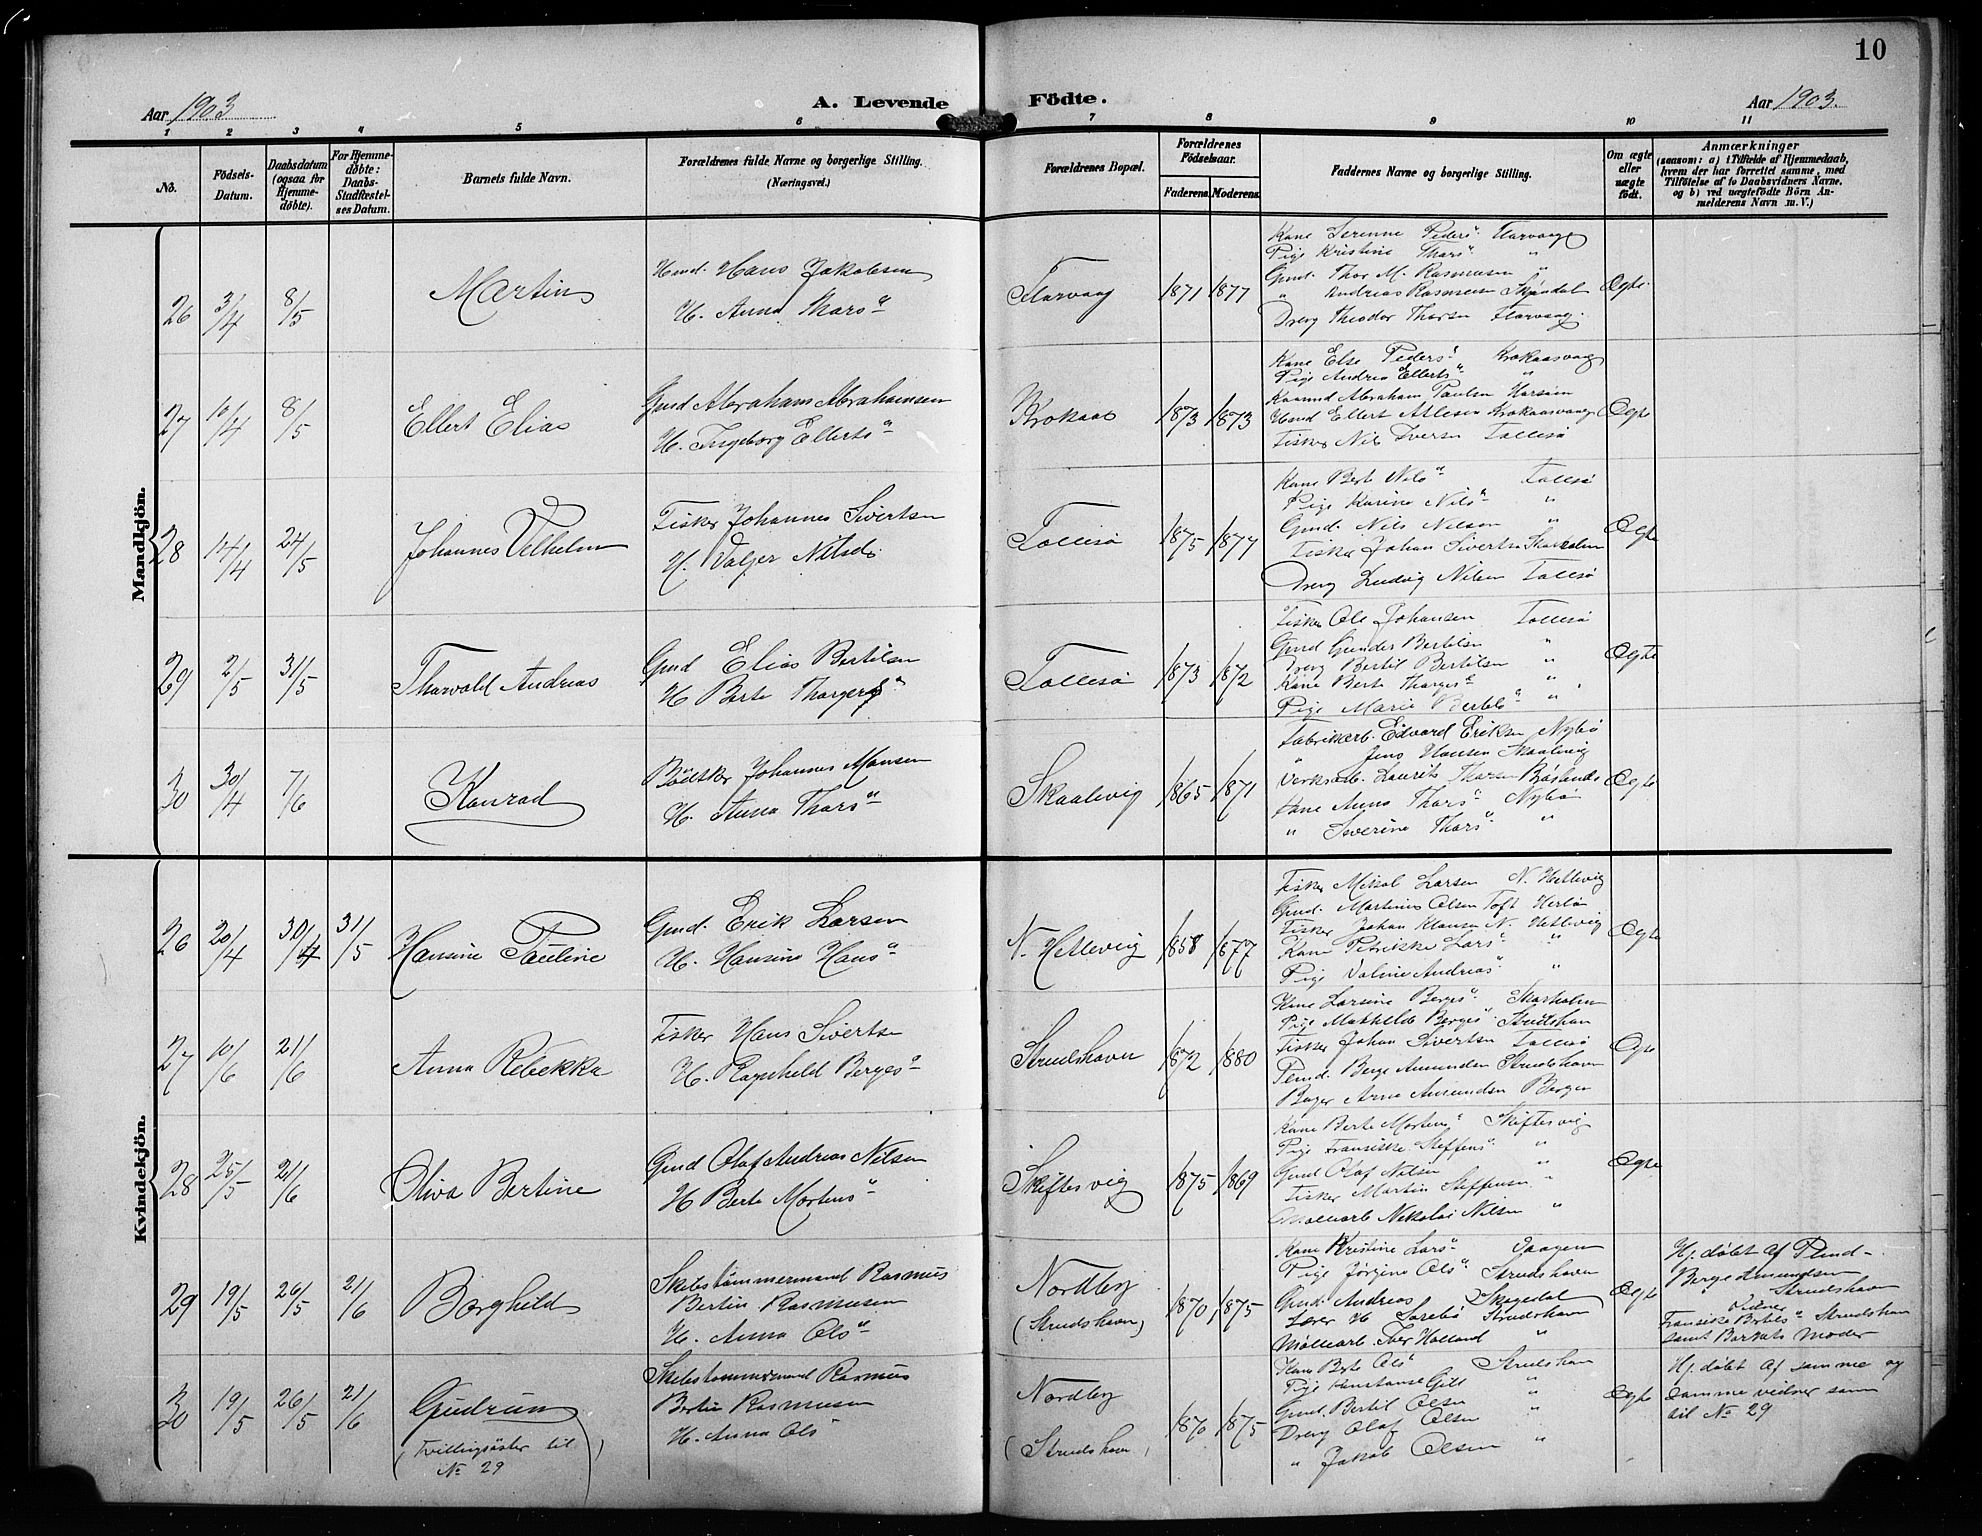 10
Aar 1903
A. Levende Födte.
Aar 1903.
1 2 3 4 5 6 7 8 9 10 11
No.
Födsels-Datum.
Daabsdatum (ogsaa for Hjemme-döbte).
For Hjemme-döbte: Daabs-Stadfæstel-ses Datum.
Barnets fulde Navn.
Forældrenes fulde Navne og borgerlige Stilling.
(Næringsvei.)
Forældrenes Bopæl.
Forældrenes Födselsaar.
Faderens. Moderens.
Faddernes Navne og borgerlige Stilling.
Om ægte eller uægte födt.
Anmærkninger
(saasom: a) i Tilfælde af Hjemmedaab,
hvem der har forrettet samme, med
Tilföielse af to Daabsvidners Navne,
og b) ved uægtefödte Börn An-
melderens Navn m. V.)
Mandkjön.
26 3/4 8/5 Martin
Hans Jakobsen
H. Anna Thors"
Flarvaag 1871 1877
Kane Serenne Peders" Flarvaag
Pige Kristine Thors" "
Gmd. Thor M. Rasmusen "
" Andreas Rasmusen Skjondal
Dreng Theodor Thorsen Flarvaag.
Ægte.
27 10/4 8/5 Ellert Elias
Gmd Abraham Abrahamsen
H. Ingeborg Ellerts"
Krokaas 1873 1873
Kane Else Peders" Krokaasvaag
Pige Andrea Ellerts" "
Abraham Paulsen
Ellert Atlesen Krokaasvaag
Fisker Nils Iversen Tollesö
Ægte
28 12/4 24/5 Johannes Velhelm
Fisker Johannes Sivertsen
H. Valger Nilsd.
Tollesö 1875 1877
Kane Berte Nils" Tollesö
Pige Karine Nils" "
Gmd. Nils Nilsen "
Fisker Johan Sivertsen Skarholm
Dreng Ludvig Nilsen Tollesö
Ægte
29 2/5 31/5 Tharvald Andreas
Gmd Elias Bertilsen
H Berte Thorgers"
Tollesö 1873 1872
Fisker Ole Johansen Tollesö
Gmd Gunder Bertilsn "
Dreng Bertil Bertilsen "
Kane Berte Thorgers" "
Pige Marie Bertils" "
Ægte
30 30/4 7/6 Konrad
Bödker Johannes Monsen
H. Anna Thors"
Skaalevig 1865 1871
Fabrikarb. Edvard Eriksen Nybö
" Jens Hansen Skaalevig
Verksarb. Laurits Thorsen
Kane Anna Thors" Nybö
" Severine Thors" "
Ægte
Kvindekjön.
26 20/4 30/4 31/5 Hansine Pauline
Gmd. Erik Larsen
H. Hansine Hans"
N. Hellevig 1858 1877
Fisker Mikal Larsen N. Hellevig
Gmd. Martinus Olsen Toft Herlö
Fisker Johan Klausen N. Hellevig
Kane Petrikke Lars" "
Pige Valine Andreas" "
Ægte
27 10/6 21/6 Anna Rebekka
Fisker Hans Sivertsen
H. Ragnhild Berges"
Strudshavn 1872 1880
Kane Larsine Berges" Skarholm
Pige Mathilde Berges" Strudshavn
Fisker Johan Sivertsen Tollesö
Pemd. Berge Amundsen Strudshavn
Bager Arne Amundsen Bergen
Ægte
28 25/5 21/6 Oliva Bertine
Gmd Olaf Andreas Nilsen
H Berte Mortens"
Skiftesvig 1875 1869
Kane Berte Mortens" Skiftesvig
Pige Fransiske Steffens" "
Gmd Olaf Nilsen "
Fisker Martin Steffensen "
Möllearb Nikolai Nilsen "
Ægte
29 19/5 26/5 21/6 Borghild
Skibstömmermand Rasmus
Bertin Rasmusen
H. Anna Ols"
Nordby
(Strudshavn) 1870 1875
Kane Kristine Lars" Vaagen
Pige Jörgine Ols" Strudshavn
Gmd. Andreas Skogedal
Lærer H Sorebö Strudshavn
Möllearb. Iver Holland "
Ægte
Hj. döbt af Pemd-
Berge Amundsen
Strudshavn
Vidner
Fransiske Bertils" Strudshavn
samt Barnets Moder
30 19/5 26/5 21/6 Gudrun
(Tvillingsöster til
No 29)
Skibstömmermand Rasmus
Bertin Rasmusen
H. Anna Ols
Nordby
(Strudshavn) 1870 1875
Kane Berte Ols" Strudshavn
Pige Konstanse Gill "
Gmd. Bertil Olsen "
Dreng Olaf Olsen
" Jakob Olsen "
Ægte
Hj. döbt af samme og
samme vidner som
til No 29